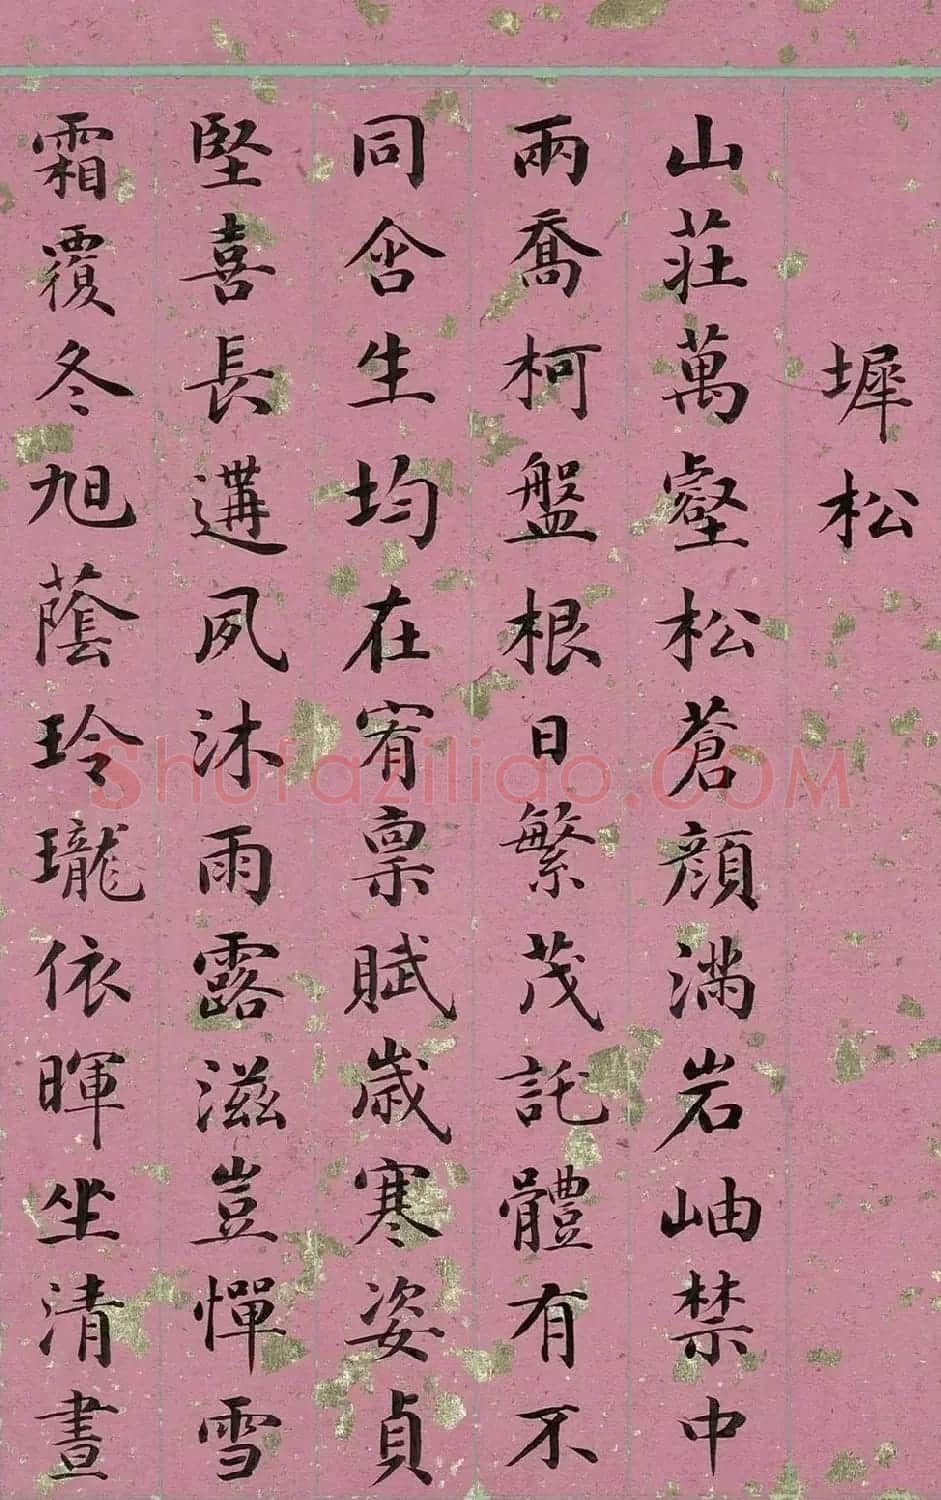 墀松
山莊萬壑松蒼顏滿岩岫禁中
兩喬柯盤根日繁茂託體有不
同含生均在宥稟賦歲寒姿貞
堅喜長遘夙沐雨露滋豈憚雪
霜覆冬旭蔭玲瓏依暉坐清晝
Shufaziliao.COM